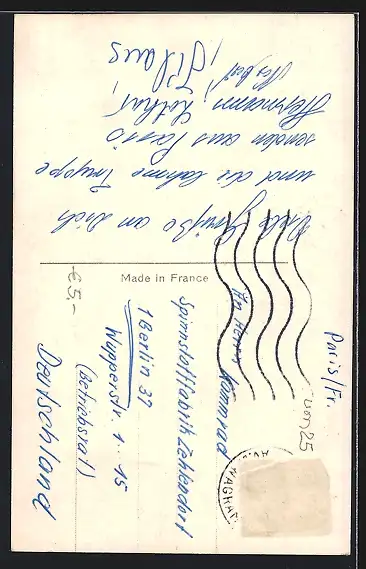 Viele Grüße an Dich
und die lahme Truppe
senden aus Paris
Hermann, Lothar,
Norbert, Klaus
Made in France
Paris/Fr.
An Herrn Kommrad
Spinnstoffabrik Zehlendorf
1 Berlin 37
Wupperstr. 1-15
(Betriebsrat)
Deutschland
€ 5,-
WAGRAM